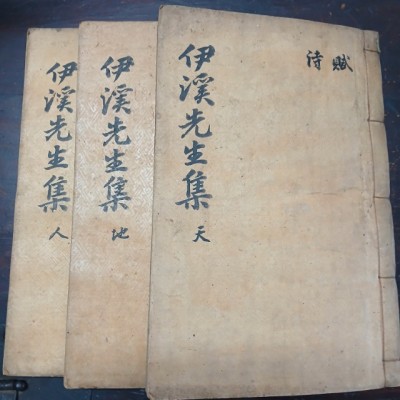 賦
詩
伊溪先生集
天
伊溪先生集
地
伊溪先生集
人